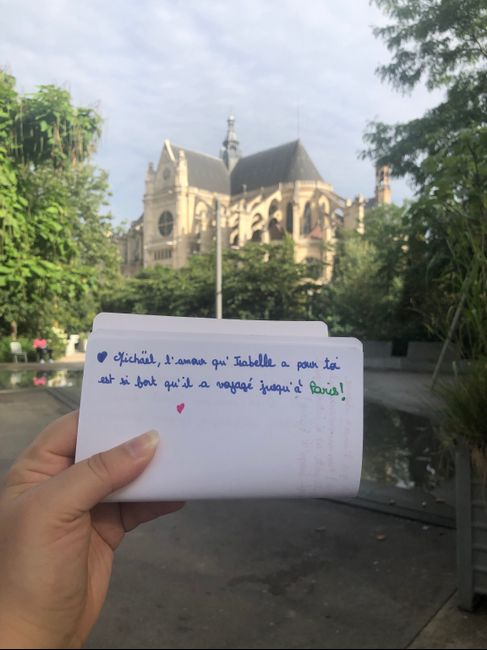 ♥ Michaël, l'amour qu'Isabelle a pour toi
est si fort qu'il a voyagé jusqu'à Paris!